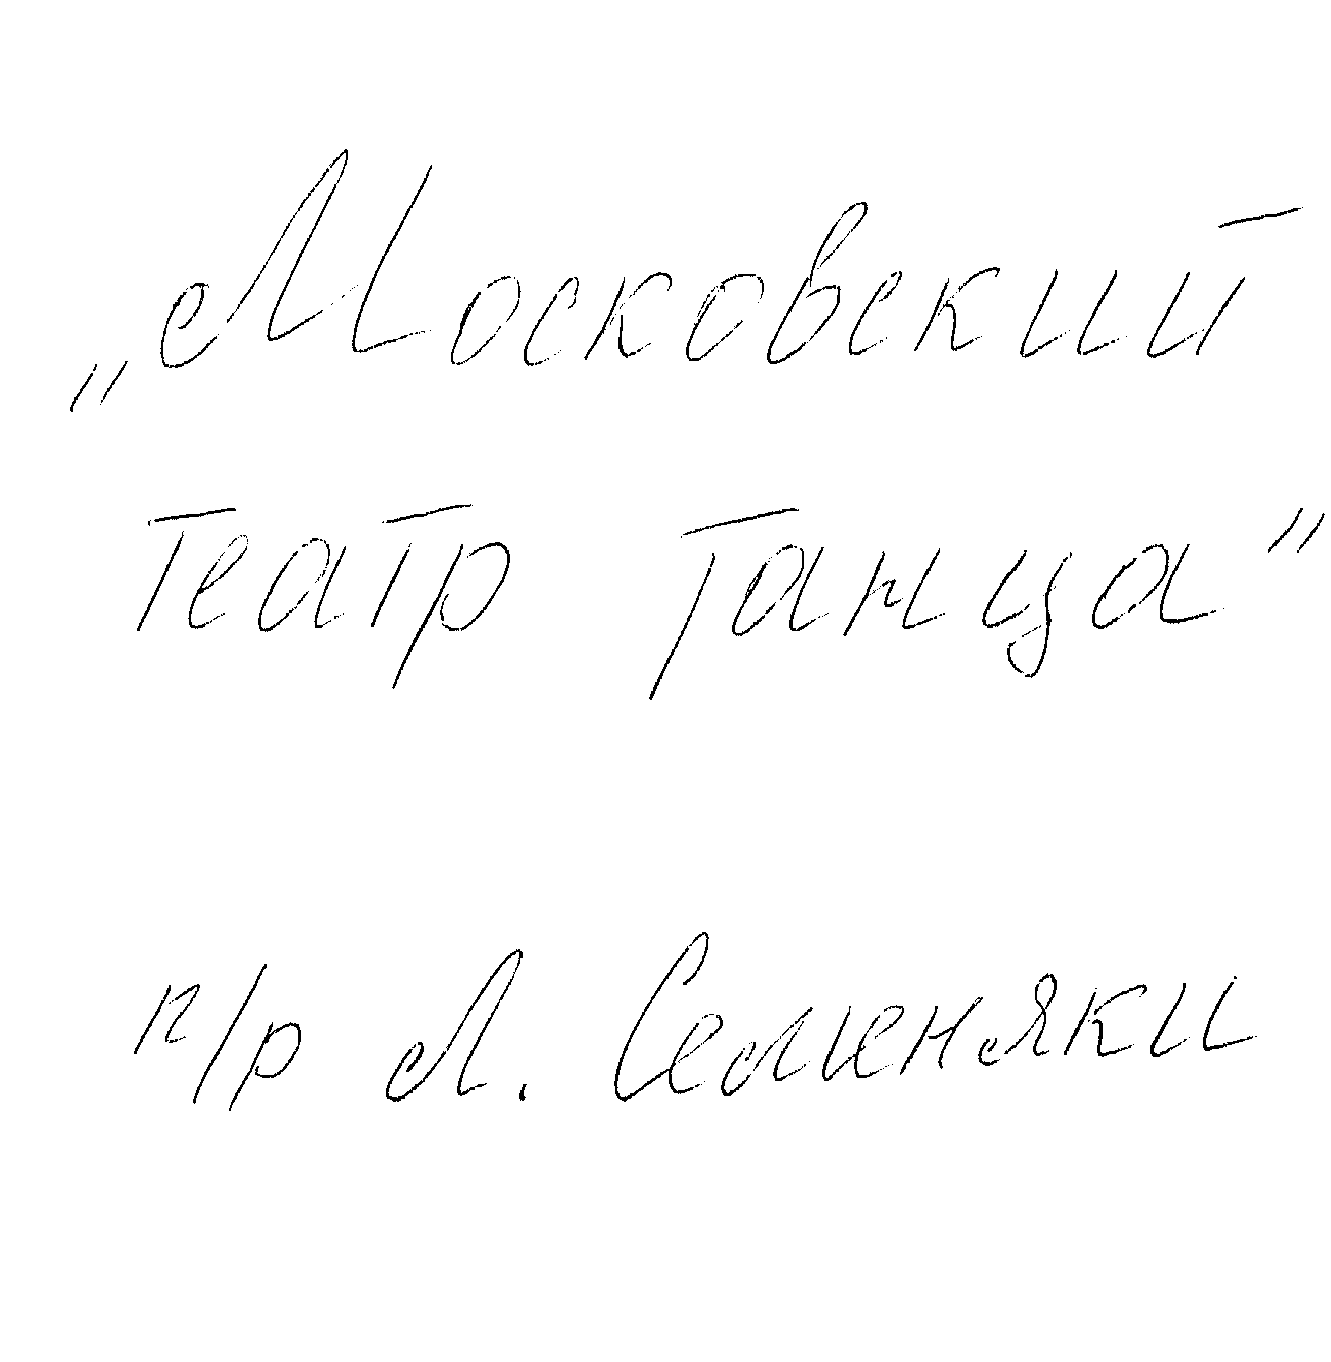 „Московский
театр танца"
п/р Л. Семеняки